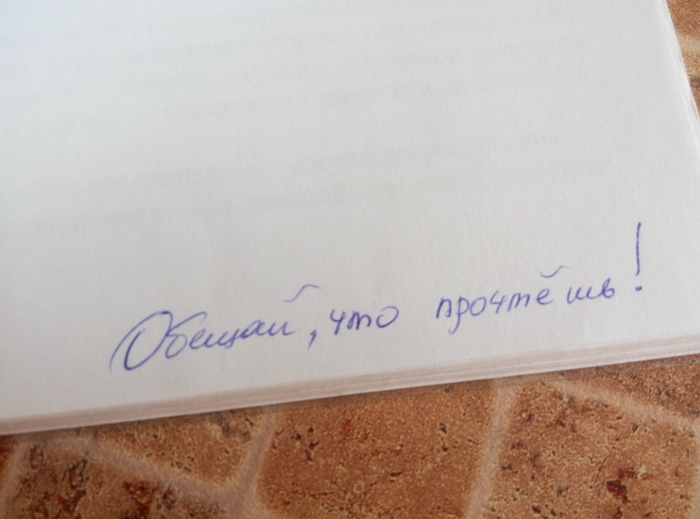 Обещай, что прочтёшь!